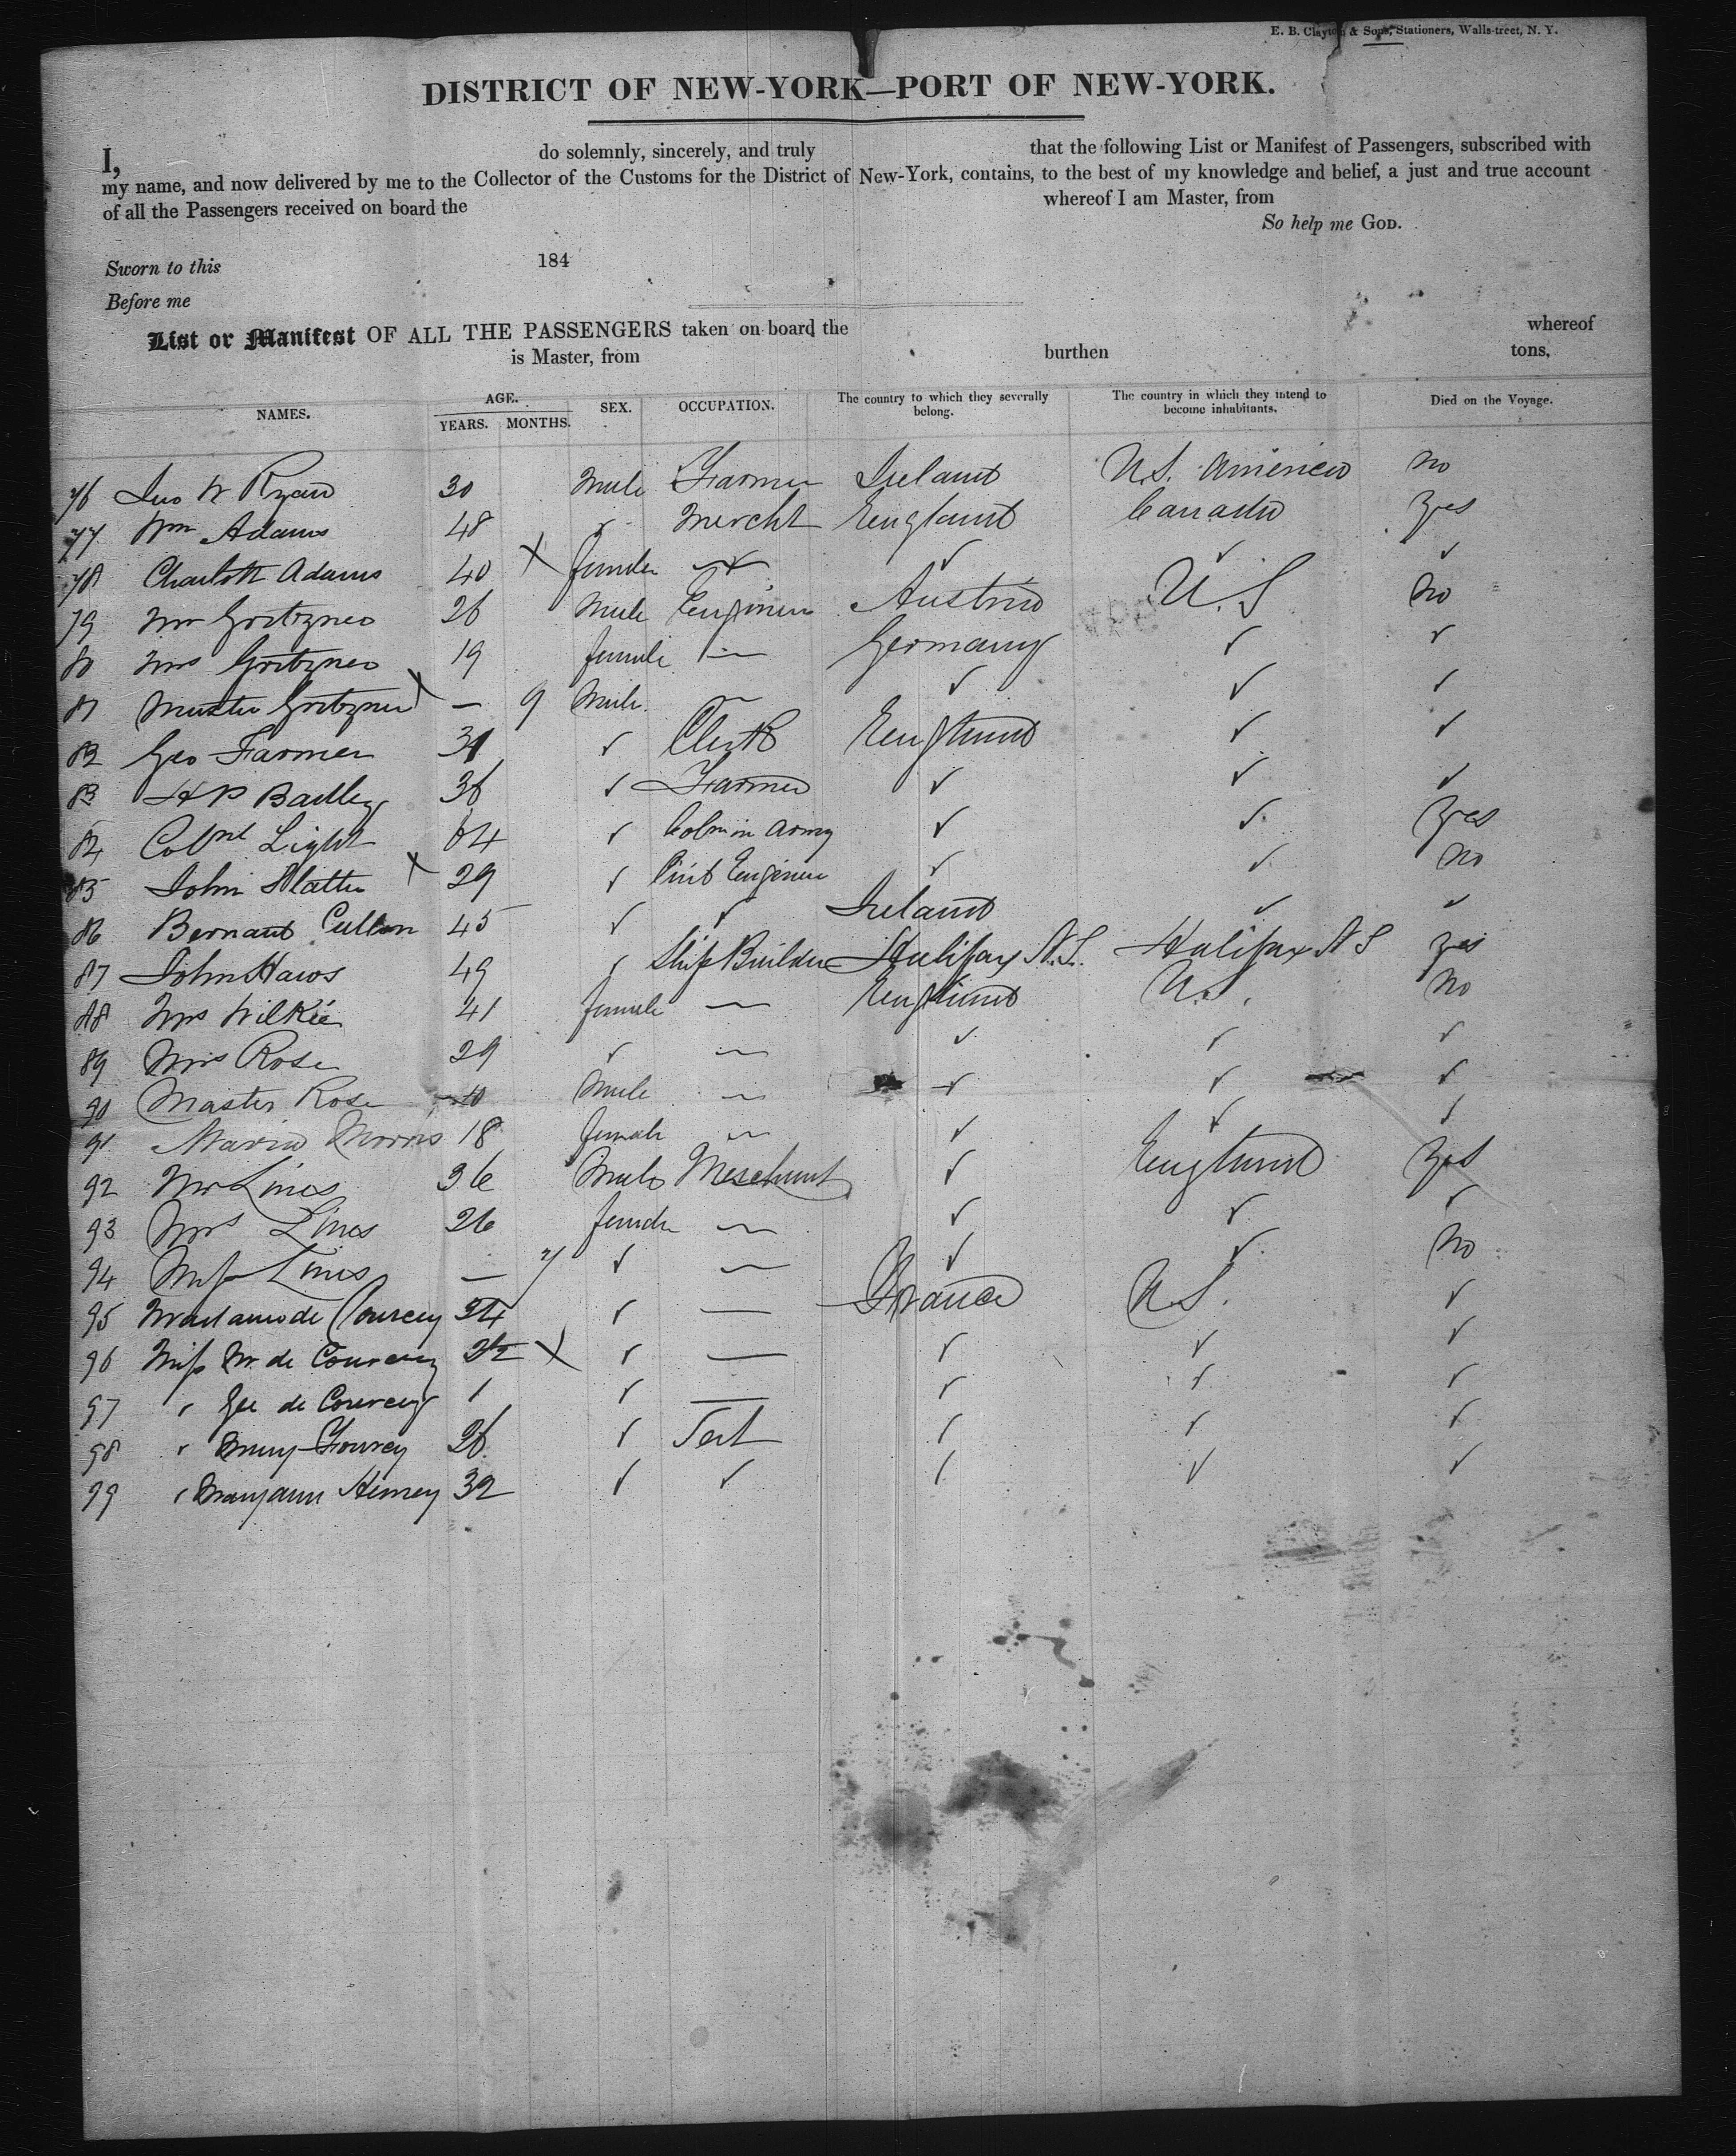 E. B. Clayton & Sons, Stationers, Wall-street, N. Y.
DISTRICT OF NEW-YORK—PORT OF NEW-YORK.
I, do solemnly, sincerely, and truly that the following List or Manifest of Passengers, subscribed with
my name, and now delivered by me to the Collector of the Customs for the District of New-York, contains, to the best of my knowledge and belief, a just and true account
of all the Passengers received on board the whereof I am Master, from
So help me GOD.
Sworn to this 184
Before me
List or Manifest OF ALL THE PASSENGERS taken on board the whereof
is Master, from burthen tons.
NAMES. AGE. YEARS. MONTHS. SEX. OCCUPATION. The country to which they severally belong. The country in which they intend to become inhabitants. Died on the Voyage.
76 Jno W Ryan 30 Male Farmer Ireland U.S. America no
77 Wm Adams 48 ✓ Mercht England Canada yes
78 Charlott Adams 40 X female ✓ ✓ ✓ ✓
79 Mr Gritzner 26 Male Engineer Austria U.S no
80 Mrs Gritzner 19 female — Germany ✓ ✓
81 Master Gritzner X — 9 Male. — ✓ ✓ ✓
82 Geo Farmer 31 ✓ Clerk England ✓ ✓
83 H P Bailley 36 ✓ Farmer ✓ ✓ ✓
84 Colnl Light 64 ✓ Col in army ✓ ✓ yes
85 John Slatter X 29 ✓ Civil Engineer ✓ ✓ no
86 Bernard Cullen 45 ✓ ✓ Ireland ✓ ✓
87 John Haws 49 ✓ Ship Builder Halifax N.S. Halifax N S yes
88 Mrs Wilkie 41 female — England U.S. no
89 Mrs Rose 29 ✓ — ✓ ✓ ✓
90 Master Rose 10 Male — ✓ ✓ ✓
91 Maria Morris 18 female — ✓ ✓ ✓
92 Mr Lines 36 Male Merchant ✓ England yes
93 Mrs Lines 26 female — ✓ ✓ ✓
94 Miss Lines — 7 ✓ — ✓ ✓ no
95 Madame de Courcey 34 ✓ — France U.S. ✓
96 Miss M. de Courcey X ✓ — ✓ ✓ ✓
97 " de Courcey 1 ✓ — ✓ ✓ ✓
98 " Mary 26 ✓ ✓ ✓ ✓
99 " Maryann 32 ✓ ✓ ✓ ✓ ✓